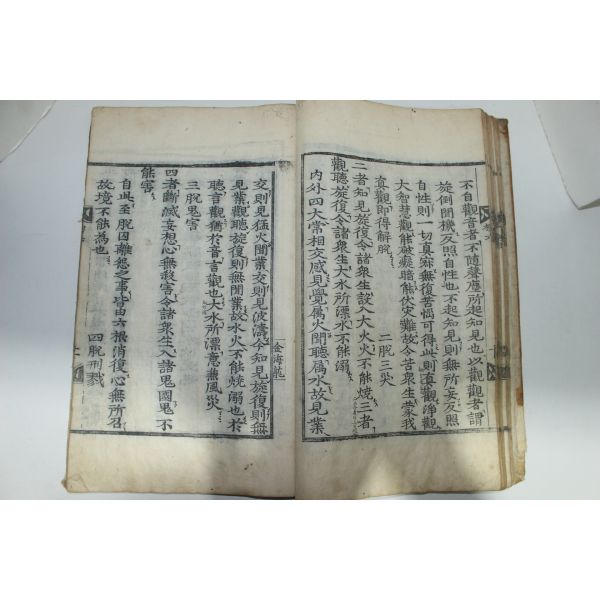 不自觀音者不隨聲塵所起知見也以觀觀者謂
旋倒聞機反照自性也不起知見則無所妄反照
自性則一切真寂無復苦惱可得此則真觀淨觀
大智慧觀能破癡暗能伏灾難故令苦衆生蒙我
真觀即得解脫 二脫三灾
二者知見旋復令諸衆生設入大火火不能燒三者
觀聽旋復令諸衆生大水所漂水不能溺
內外四大常相交感見覺屬火聞聽屬水故見業
交則見猛火聞業交則見波濤今知見旋復則無
見業觀聽旋復則無聞業故水火不能燒溺也於
聽言觀猶於音言觀也大水所漂意兼風灾
三脫鬼害
四者斷滅妄想心無殺害令諸衆生入諸鬼國鬼不
能害
自此至脫囚離怨之事皆由六根消復心無所召
故境不能為也 四脫刑戮